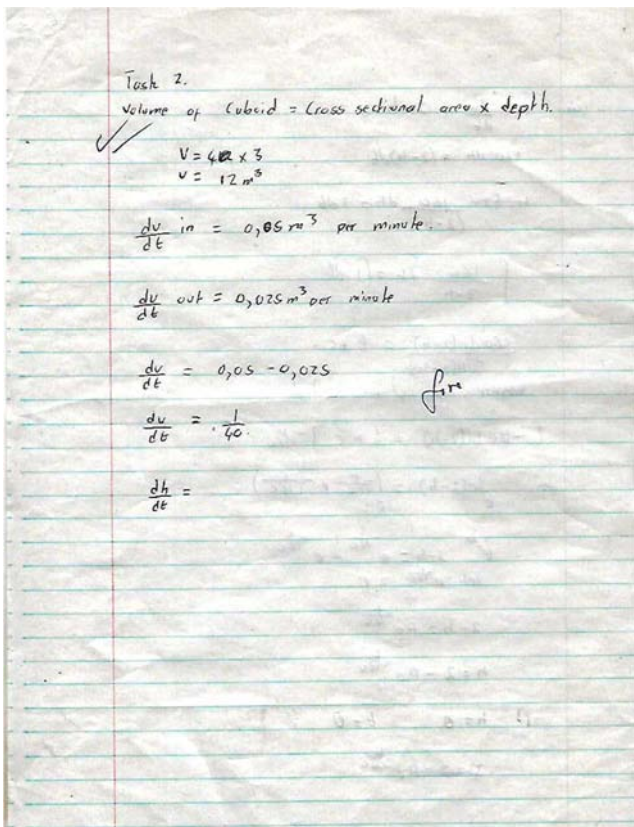 Task 2.
Volume of Cuboid = Cross sectional area x depth.
V = 4 x 3
v = 12 m³
dv/dt in = 0,05 m³ per minute.
dv/dt out = 0,025 m³ per minute
dv/dt = 0,05 - 0,025
dv/dt = 1/40.
dh/dt =